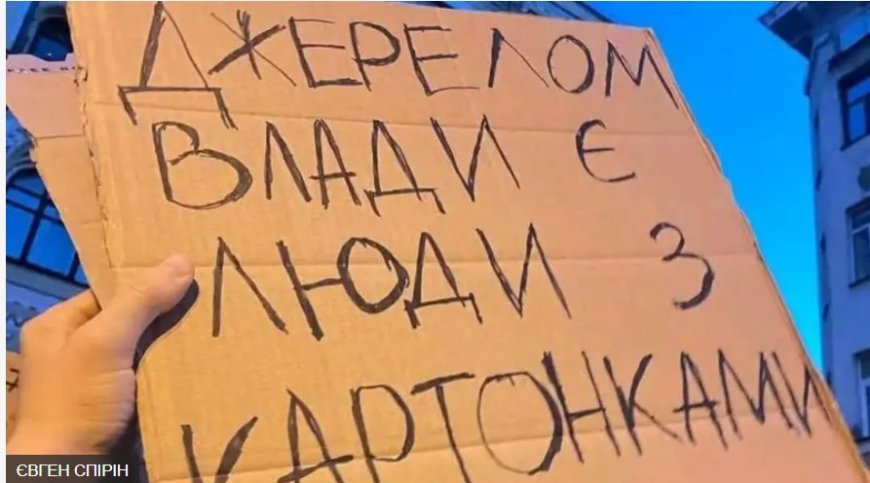 ДЖЕРЕЛОМ
ВЛАДИ Є
ЛЮДИ З
КАРТОНКАМИ
ЄВГЕН СПІРІН